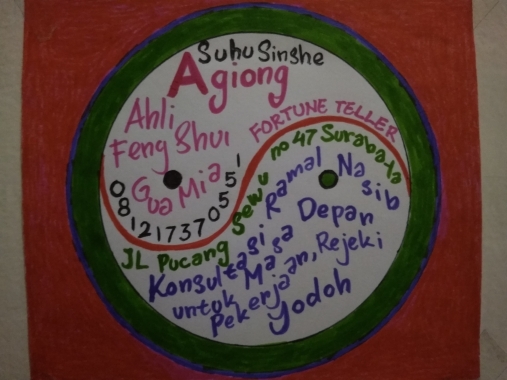 Suhu Sinshe
Agiong
Ahli
Feng Shui
Gua Mia
081217370551
FORTUNE TELLER
JL Pucang Sewu no 47 Surabaya
Ramal Nasib
Konsultasi
untuk Masa Depan
Pekerjaan, Rejeki
Yodoh